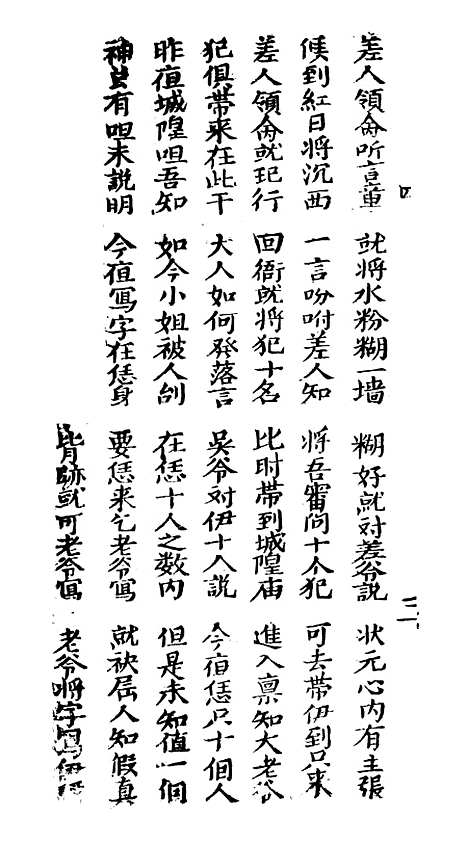 差人領命听言章 就将水粉糊一墙 糊好就对差爷說 状元心内有主張
候到紅日将沉西 一言吩咐差人知 将吾審问十个犯 可去带伊到只来
差人領命就起行 回衙就将犯十名 比时带到城隍庙 進入禀知大老爷
犯俱帶来在此干 大人如何發落言 吳爷对伊十人説 今宿恁只十個人
昨夜城隍呾吾知 如今小姐被人刣 在恁十人之数内 但是未知值一個
神有呾未説明 今夜寫字在恁身 要恁来乞老爷寫 就袂屈人知假真
背跡就可老爷寫 老爷将字寫伊
四
三一